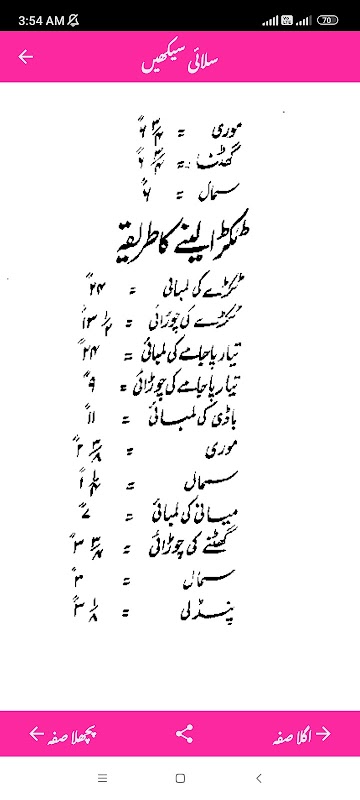 3:54 AM 70
سلائی سیکھیں
موری = ۶ ۳/۴"
گھٹنا = ۶ ۳/۴"
سمال = ۶"
ٹکڑا لینے کا طریقہ
ٹکڑے کی لمبائی = ۲۴"
ٹکڑے کی چوڑائی = ۱۳ ۱/۲"
تیار پاجامے کی لمبائی = ۲۴"
تیار پاجامے کی چوڑائی = ۹"
باڈی کی لمبائی = ۱۱"
موری = ۲ ۳/۸"
سمال = ۱ ۱/۴"
میانی کی لمبائی = ۷"
گھٹنے کی چوڑائی = ۳ ۳/۸"
سمال = ۳"
پنڈلی = ۳ ۱/۸"
اگلا صفہ
پچھلا صفہ